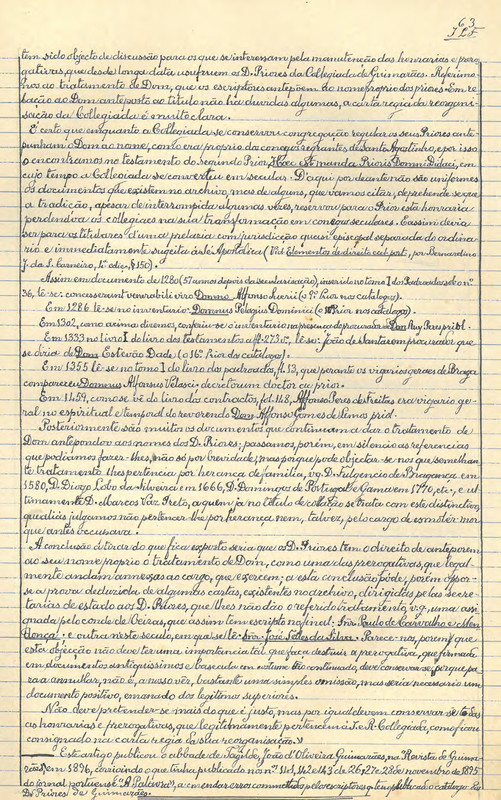 63
J.L.F.
têm sido objecto de discussão para os que se interessam pela manutenção das honrarias e prero-
gativas, que desde longa data usufruem os D. Priores da Collegiada de Guimarães. Referimo-
nos ao tratamento de Dom, que os escriptores antepõem ao nome proprio dos priores. Em re-
lação ao Dom anteposto ao titulo não ha duvidas algumas, a carta regia da reorgani-
sação da Collegiada é muito clara.
É certo que enquanto a Collegiada se conservou congregação regular os seus Priores ante-
punham o Dom ao nome, como era proprio dos conegos regrantes de Santo Agostinho, e por isso
o encontramos no testamento do segundo Prior, Hoec est manda Prioris Domni Didaci, em
cujo tempo a Collegiada se converteu em secular. D'aqui por deante não são uniformes
os documentos que existem no archivo, mas de alguns, que vamos citar, deprehende-se que
a tradição, apesar de interrompida algumas vezes, reservou para o Prior esta honraria
perdendo-a os collegiaes na sua transformação em conegos seculares. E assim devia
ser para os titulares d'uma prelazia com jurisdicção quasi episcopal separada do ordina-
rio e immediatamente sugeita á Sé Apostolica (Vid. Elementos de direito eccl. port., por Bernardino
J. da S. Carneiro, 1ª ediç., § 150).
Assim em documento de 1280 (57 annos depois da secularisação), inserido no tomo I dos Padroados sob o nº
36, lê-se: concesserunt venerabili viro Donno Affonso Suerii (o 9º Prior no catalogo).
Em 1286 lê-se no inventario: Domnus Pelagius Dominici (o 10º Prior no catalogo).
Em 1302, como acima diremos, conferiu-se o inventario na presença do procurador de Don Ruy Peres priol.
Em 1333 no livro I do livro dos testamentos a fl. 273 vº, lê-so: João de Santarem procurador que
se diria de Dom Estevão Dade (o 16º Prior do catalogo).
Em 1355 lê-se no tomo I do livro dos padroados, fl. 13, que perante os vigarios geraes de Braga
compareceu Domnus Alfonsus Velasci decretorum doctor ac prior.
Em 1459, como se vê do livro dos contractos, fol. 148, Affonso Peres de Freitas era vigario ge-
ral no espiritual e temporal do reverendo Dom Affonso Gomes de Lemos priol.
Posteriormente são muitos os documentos que continuam a dar o tratamento de
Dom antepondo-o aos nomes dos D. Priores: passamos, porem, em silencio as referencias
que podiamos fazer-lhes, não só por brevidade, mas porque pode objectar-se-nos que semelhan-
te tratamento lhes pertencia por herança de familia, v.g. D. Fulgencio de Bragança em
1580, D. Diogo Lobo da Silveira em 1666, D. Domingos de Portugal e Gama em 1770, etc., e ul-
timamente D. Marcos Vaz Preto, a quem já no titulo de collação se trata com este distinctivo,
que aliás julgamos não pertencer-lhe por herança, nem, talvez, pelo cargo de esmoler-mór
que antes occupava.
A conclusão a tirar do que fica exposto seria que os D. Priores tem o direito de anteporem
ao seu nome proprio o tratamento de Dom, como uma das prerogativas, que legal-
mente andam annexas ao cargo, que exercem: a esta conclusão póde, porem, oppor-
se a prova deduzida de algumas cartas, existentes no archivo, dirigidas pelas secre-
tarias de estado aos D. Priores, que lhes não dão o referido tratamento v.g. uma assi-
gnada pelo conde de Oeiras, que assim tem escripto no final: Snr. Paulo de Carvalho e Men-
donça: e outra neste seculo, em que se lê: Snr. José Telles da Silva. Parece-nos, porem, que
esta objecção não deve ter uma importancia tal que faça destruir a prerogativa, que firmada
em documentos antiquissimos e baseada em costume tão continuado, deve conservar-se porque pa-
ra annullar, não é, a nosso vêr, bastante uma simples omissão, mas seria necessario um
documento positivo, emanado dos legitimos superiores.
Não deve pretender-se mais do que é justo, mas por igual devem conservar-se todas
as honrarias e prerogativas, que legitimamente pertencem á I. e R. Collegiada, como ficou
consignado na carta regia da sua reorganisação.»
Este artigo publicou o abbade de Tagilde, João d'Oliveira Guimarães, na "Revista de Guima-
rães", em 1896, corrigindo o que tinha publicado nos nºs 141, 142 e 143 de 26, 27 e 28 de novembro de 1895
do jornal portuense "A Palavra", a emendar erros commettidos pelos escriptores que teem publicado o catalogo dos
D. Priores de Guimarães.